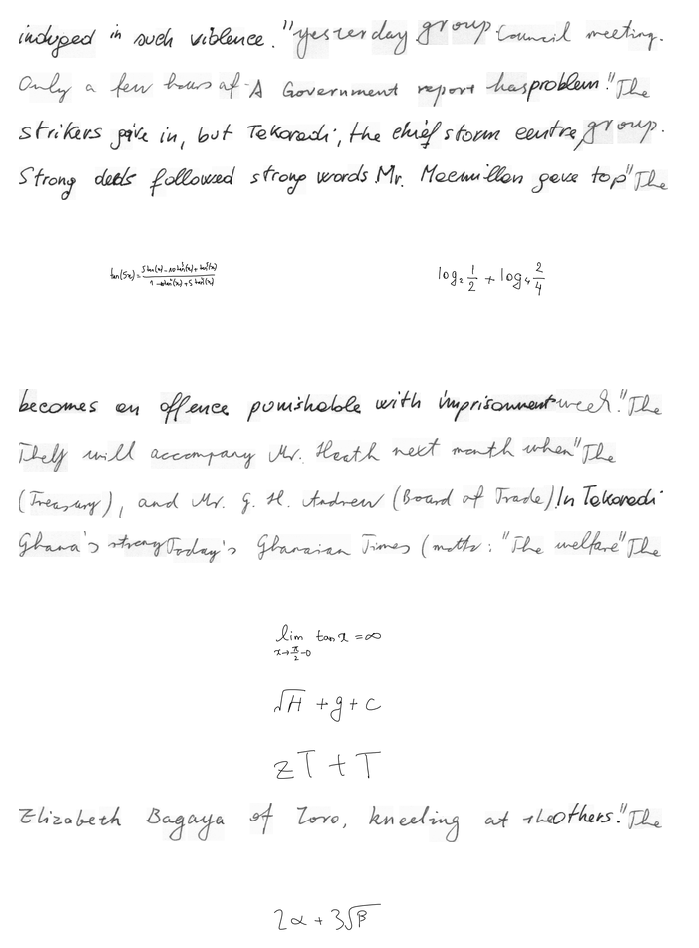 indulged in such violence. "yesterday group Council meeting.
Only a few hours af- A Government report has problem." The
strikers gave in, but Tekoradi, the chief storm centre, group.
Strong deeds followed strong words. Mr. Macmillan gave top "The
tan(5x) = \frac{5 tan(x) - 10 tan^3(x) + tan^5(x)}{1 - 10 tan^2(x) + 5 tan^4(x)}
log_2 \frac{1}{2} + log_4 \frac{2}{4}
becomes an offence punishable with imprisonment week." The
They will accompany Mr. Heath next month when "The
(Treasury), and Mr. G. H. Andrew (Board of Trade). In Tekoradi
Ghana's strong Today's Ghanaian Times (motto: "The welfare" The
\lim_{x \to \frac{\pi}{2} - 0} tan x = ∞
√H + g + c
zT + T
Elizabeth Bagaya of Toro, kneeling at the others." The
2α + 3√β